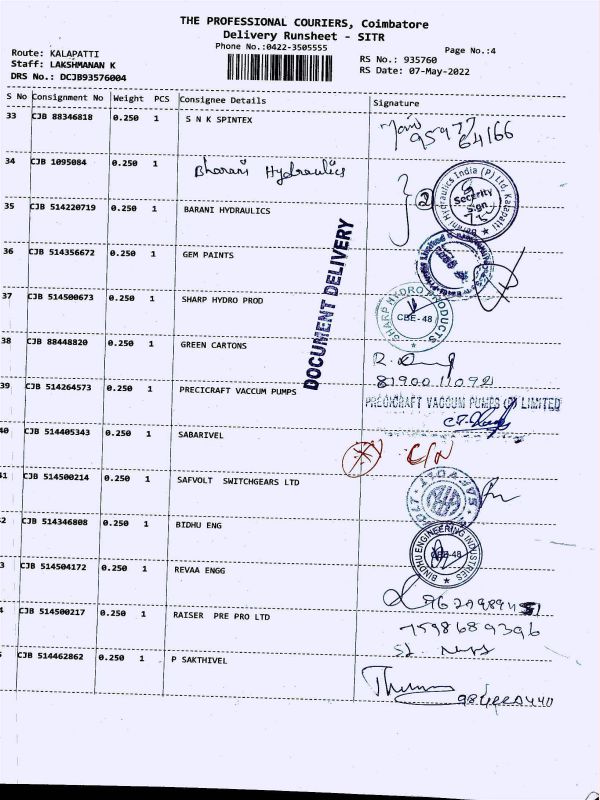 THE PROFESSIONAL COURIERS, Coimbatore
Delivery Runsheet - SITR
Phone No.:0422-3505555
Page No.:4
Route: KALAPATTI
Staff: LAKSHMANAN K
DRS No.: DCJB93576004
RS No.: 935760
RS Date: 07-May-2022
S No Consignment No Weight PCS Consignee Details Signature
33 CJB 88346818 0.250 1 S N K SPINTEX
64166
34 CJB 1095084 0.250 1 Bharani Hydraulics
2
Hydraulics India (P) Ltd, Kalapatti
Security
Sign
35 CJB 514220719 0.250 1 BARANI HYDRAULICS
DOCUMENT DELIVERY
36 CJB 514356672 0.250 1 GEM PAINTS
37 CJB 514500673 0.250 1 SHARP HYDRO PROD
SHARP HYDRO PRODUCTS
CBE-48
38 CJB 88448820 0.250 1 GREEN CARTONS
39 CJB 514264573 0.250 1 PRECICRAFT VACCUM PUMPS
PRECICRAFT VACCUM PUMPS (P) LIMITED
40 CJB 514405343 0.250 1 SABARIVEL
C/N
41 CJB 514500214 0.250 1 SAFVOLT SWITCHGEARS LTD
2 CJB 514346808 0.250 1 BIDHU ENG
BINDHU ENGINEERING INDUSTRIES
CBE-48
3 CJB 514504172 0.250 1 REVAA ENGG
4 CJB 514500217 0.250 1 RAISER PRE PRO LTD
7598689396
5 CJB 514462862 0.250 1 P SAKTHIVEL